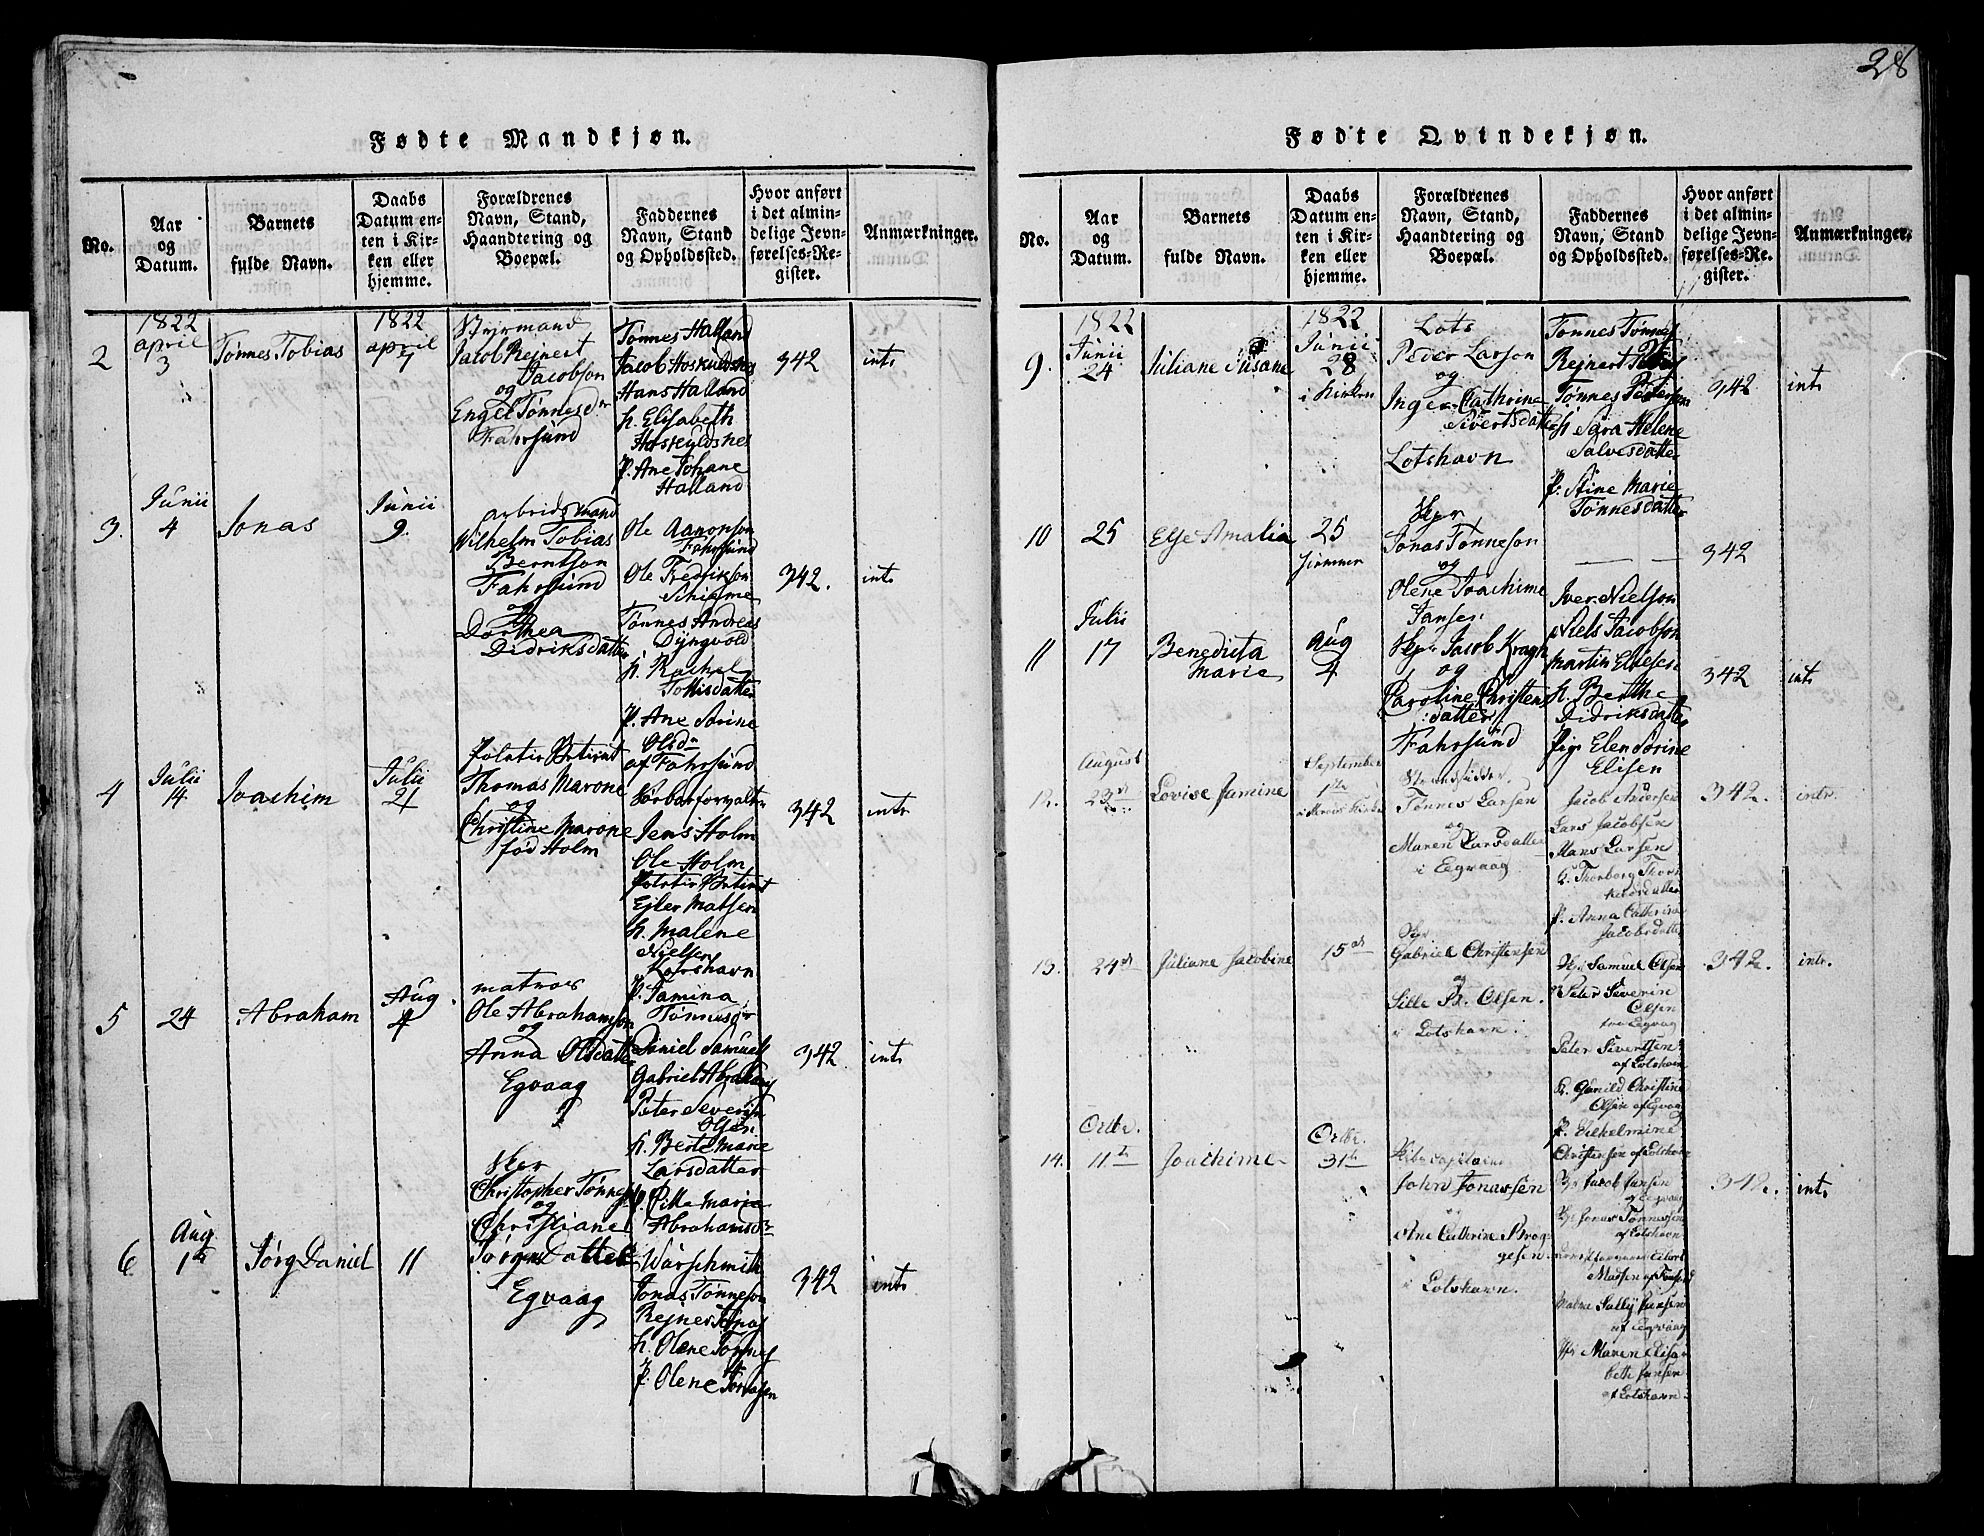 28
Fødte Mandkjøn.
No.
Aar
og
Datum.
Barnets
fulde Navn.
Daabs
Datum en-
ten i Kir-
ken eller
hjemme.
Forældrenes
Navn, Stand,
Haandtering og
Boepæl.
Faddernes
Navn, Stand
og Opholdssted.
Hvor anført
i det almin-
delige Jevn-
førelses-Re-
gister.
Anmærkninger.
2
1822
april
3
Tønnes Tobias
1822
april
7
Styrmand
Jacob Rejnert
Jacobson
og
Engel Tønnesdr
Fahrsund
Tønnes Halland
Jacob Hoskuldsnes
Hans Halland
h. Elisabeth
Hoskyldsnes
P. Ane Johane
Halland
342
intr
3.
Junii
4
Jonas
Junii
9.
arbridsmand
Wilhelm Tobias
Berntson
Fahrsund
og
Dorthea
Didriksdatter
Ole Aanonson
Fahrsund
Ole Fredrikson
Tønnes Andreas
Dyngvold
h. Rachel
Tollisdatter
P. Ane Sorine
Olsdr
af Fahrsund
342.
intr
4
Julii
14
Joachim
Julii
21
Thomas Marone
og
Christine Marone
fød Holm
Jens Holm
Ole Holm
Ejler Matsen
h. Malene
Nielsen
P. Jamina
Tønnesdr
342
intr
5
24
Abraham
Aug.
4
matros
Ole Abrahamson
og
Anna Olsdatter
Egvaag
Daniel Samuels
Gabriel Abrahams
Peter Severin
Olsen
h. Berte Marie
Larsdatter
P. Sille Marie
Abrahamsdr
342
intr
6
Aug
1ste
Jørg Daniel
11
Skpr
Christopher Tønnes
og
Christiane
Jørgens Datter
Egvaag
Warschmith
Jonas Tønneson
Rejner Jonas
h. Olene Tønnes
P. Olene Jonassen
342
intr
Fødte Qvindekjøn.
No.
Aar
og
Datum.
Barnets
fulde Navn.
Daabs
Datum en-
ten i Kir-
ken eller
hjemme.
Forældrenes
Navn, Stand,
Haandtering og
Boepæl.
Faddernes
Navn, Stand
og Opholdssted.
Hvor anført
i det almin-
delige Jevn-
førelses-Re-
gister.
Anmærkninger.
9.
1822
Junii
24
Juliane Susane
1822
Junii
28
i Kirken
Lots
Peder Larson
og
Inger Cathrine
Sivertsdatter
Lotshavn
Tønnes Tønnes
Rejnert
Tønnes Pedersen
h. Sara Helene
Salvesdatter
P. Stine Marie
Tønnesdatter
342
intr
10
25
Else Amalia
25
hiemmen
Skpr
Jonas Tønneson
og
Olene Joachime
Jansen
342
11
Julii
17
Benedicta
Marie
Aug
4
Skpr Jacob Kragh
og
Caroline Christens
datter
Fahrsund
Iver Nielson
Niels Jacobson
Martin Eliesen
h. Berthe
Didriksdatter
Pige Elen Sørine
Elisen
342
intr
12.
August
23de
Lovise Jamine
September
1ste
Strandsidder
Tønnes Larsen
og
Maren Larsdatter
i Eegvaag
Jacob Andersen
Lars Jacobsen
Hans Larsen
P. Anna Cathrine
Jacobsdatter
342.
intr.
13.
24de
Juliane Jacobine
15de
Skpr
Gabriel Christensen
og
Sille B. Olsen.
i Lotshavn.
Skpr Samuel Olsen
Peter Severin
Olsen
fra Eegvaag
Peter Sivertsen
af Lotshavn
K. Gunild Christine
Olsen af Egvaag
P. Vilhelmine
Christensen af Lotshavn
342.
intr.
14.
Octbr.
11te
Joachime
Octbr.
31te
Skibscapitain
John Jonassen
og
Ane Cathrine Brog-
gesen.
i Lotshavn.
Skpr Jacob Jansen
af Eegvaag
Skpr Jonas Tønnessen
af Lotshavn
Madsen af
Madme Sally Jansen
af Eegvaag
Jfr Maren Elisa-
beth Jansen
af Lotshavn.
342.
intr